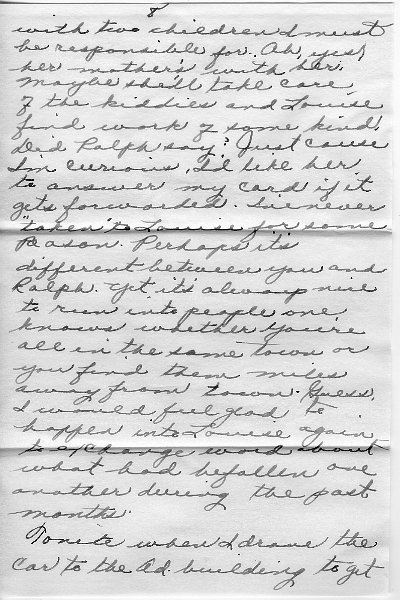 8
with two children I must
be responsible for. Ah, yes,
her mother's with her.
Maybe she'll take care
of the kiddies and Louise
find work of some kind.
Did Ralph say? Just cause
I'm curious, I'd like her
to answer my card if it
gets forwarded. I've never
"taken" to Louise for some
reason. Perhaps it's
different between you and
Ralph. Yet it's always nice
to run into people one
knows whether you're
all in the same town or
you find them miles
away from town. Guess,
I would feel glad to
happen into Louise again
to exchange word about
what had befallen one
another during the past
months.
Tonite when I drove the
car to the Ad. building to get